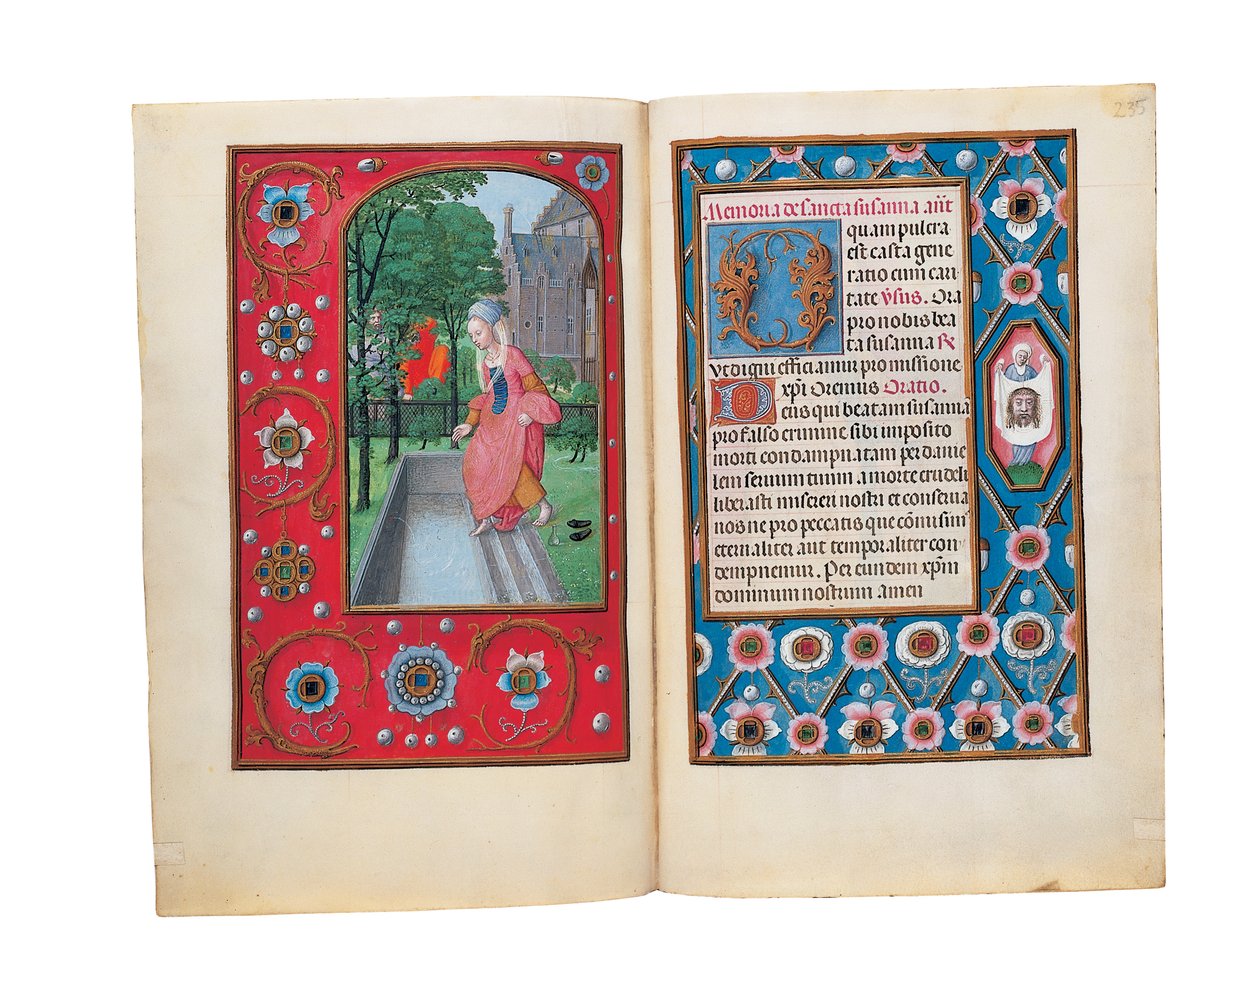 235
Memoria de sancta susanna añt
O quam pulcra
est casta gene
ratio cum cari
tate ṽsus. Ora
pro nobis bea
ta susanna R
vt digni efficiamur pro missione
xp̃i Oremus Oratio.
Deus qui beatam susanna
pro falso crimine sibi imposito
morti condampnatam per danie
lem seruum tuum a morte crudeli
liberasti miserei nostri et conserua
nos ne pro peccatis que cõmisim
eternaliter aut temporaliter con
dempnemur. Per eundem xp̃m
dominum nostrum amen